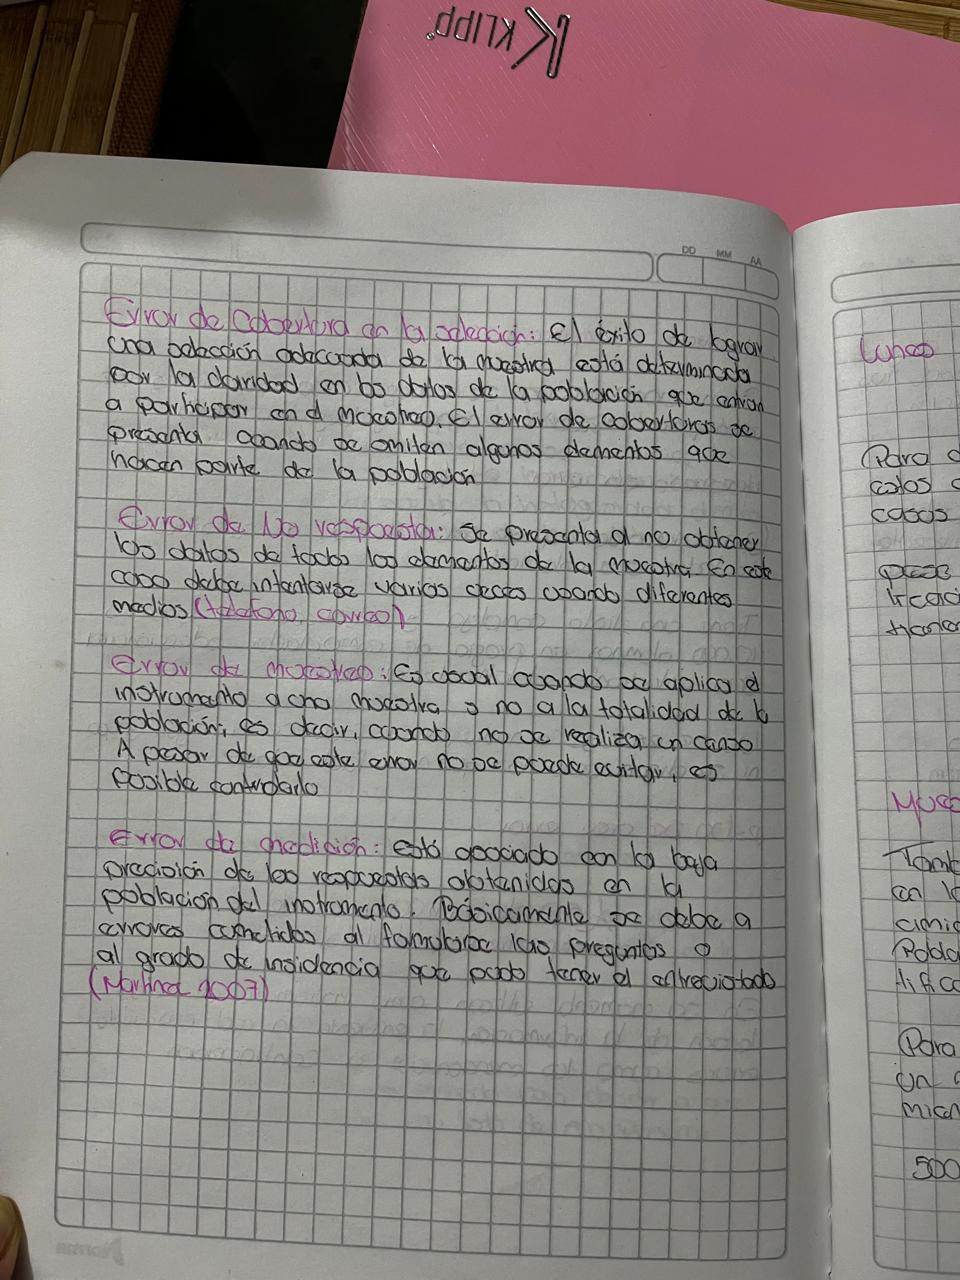 KLIPP
DD MM AA
Error de Cobertura en la selección: El éxito de lograr
una selección adecuada de la muestra está determinada
por la claridad en los datos de la población que entran
a participar en el muestreo. El error de coberturas se
presenta cuando se omiten algunos elementos que
hacen parte de la población
Error de No respuesta: Se presenta al no obtener
los datos de todos los elementos de la muestra. En este
caso debe intentarse varias veces usando diferentes
medios (teléfono, correo)
Error de muestreo: Es usual cuando se aplica el
instrumento a una muestra y no a la totalidad de la
población, es decir, cuando no se realiza un censo
A pesar de que este error no se puede evitar, es
posible controlarlo
Error de medición: está asociado con la baja
precisión de las respuestas obtenidas en la
población del instrumento. Básicamente se debe a
errores cometidos al formularse las preguntas o
al grado de insidencia que pudo tener el entrevistado
(Martinez 2007)
Norma
Lunes
Para
casos
tific
Para
un
500